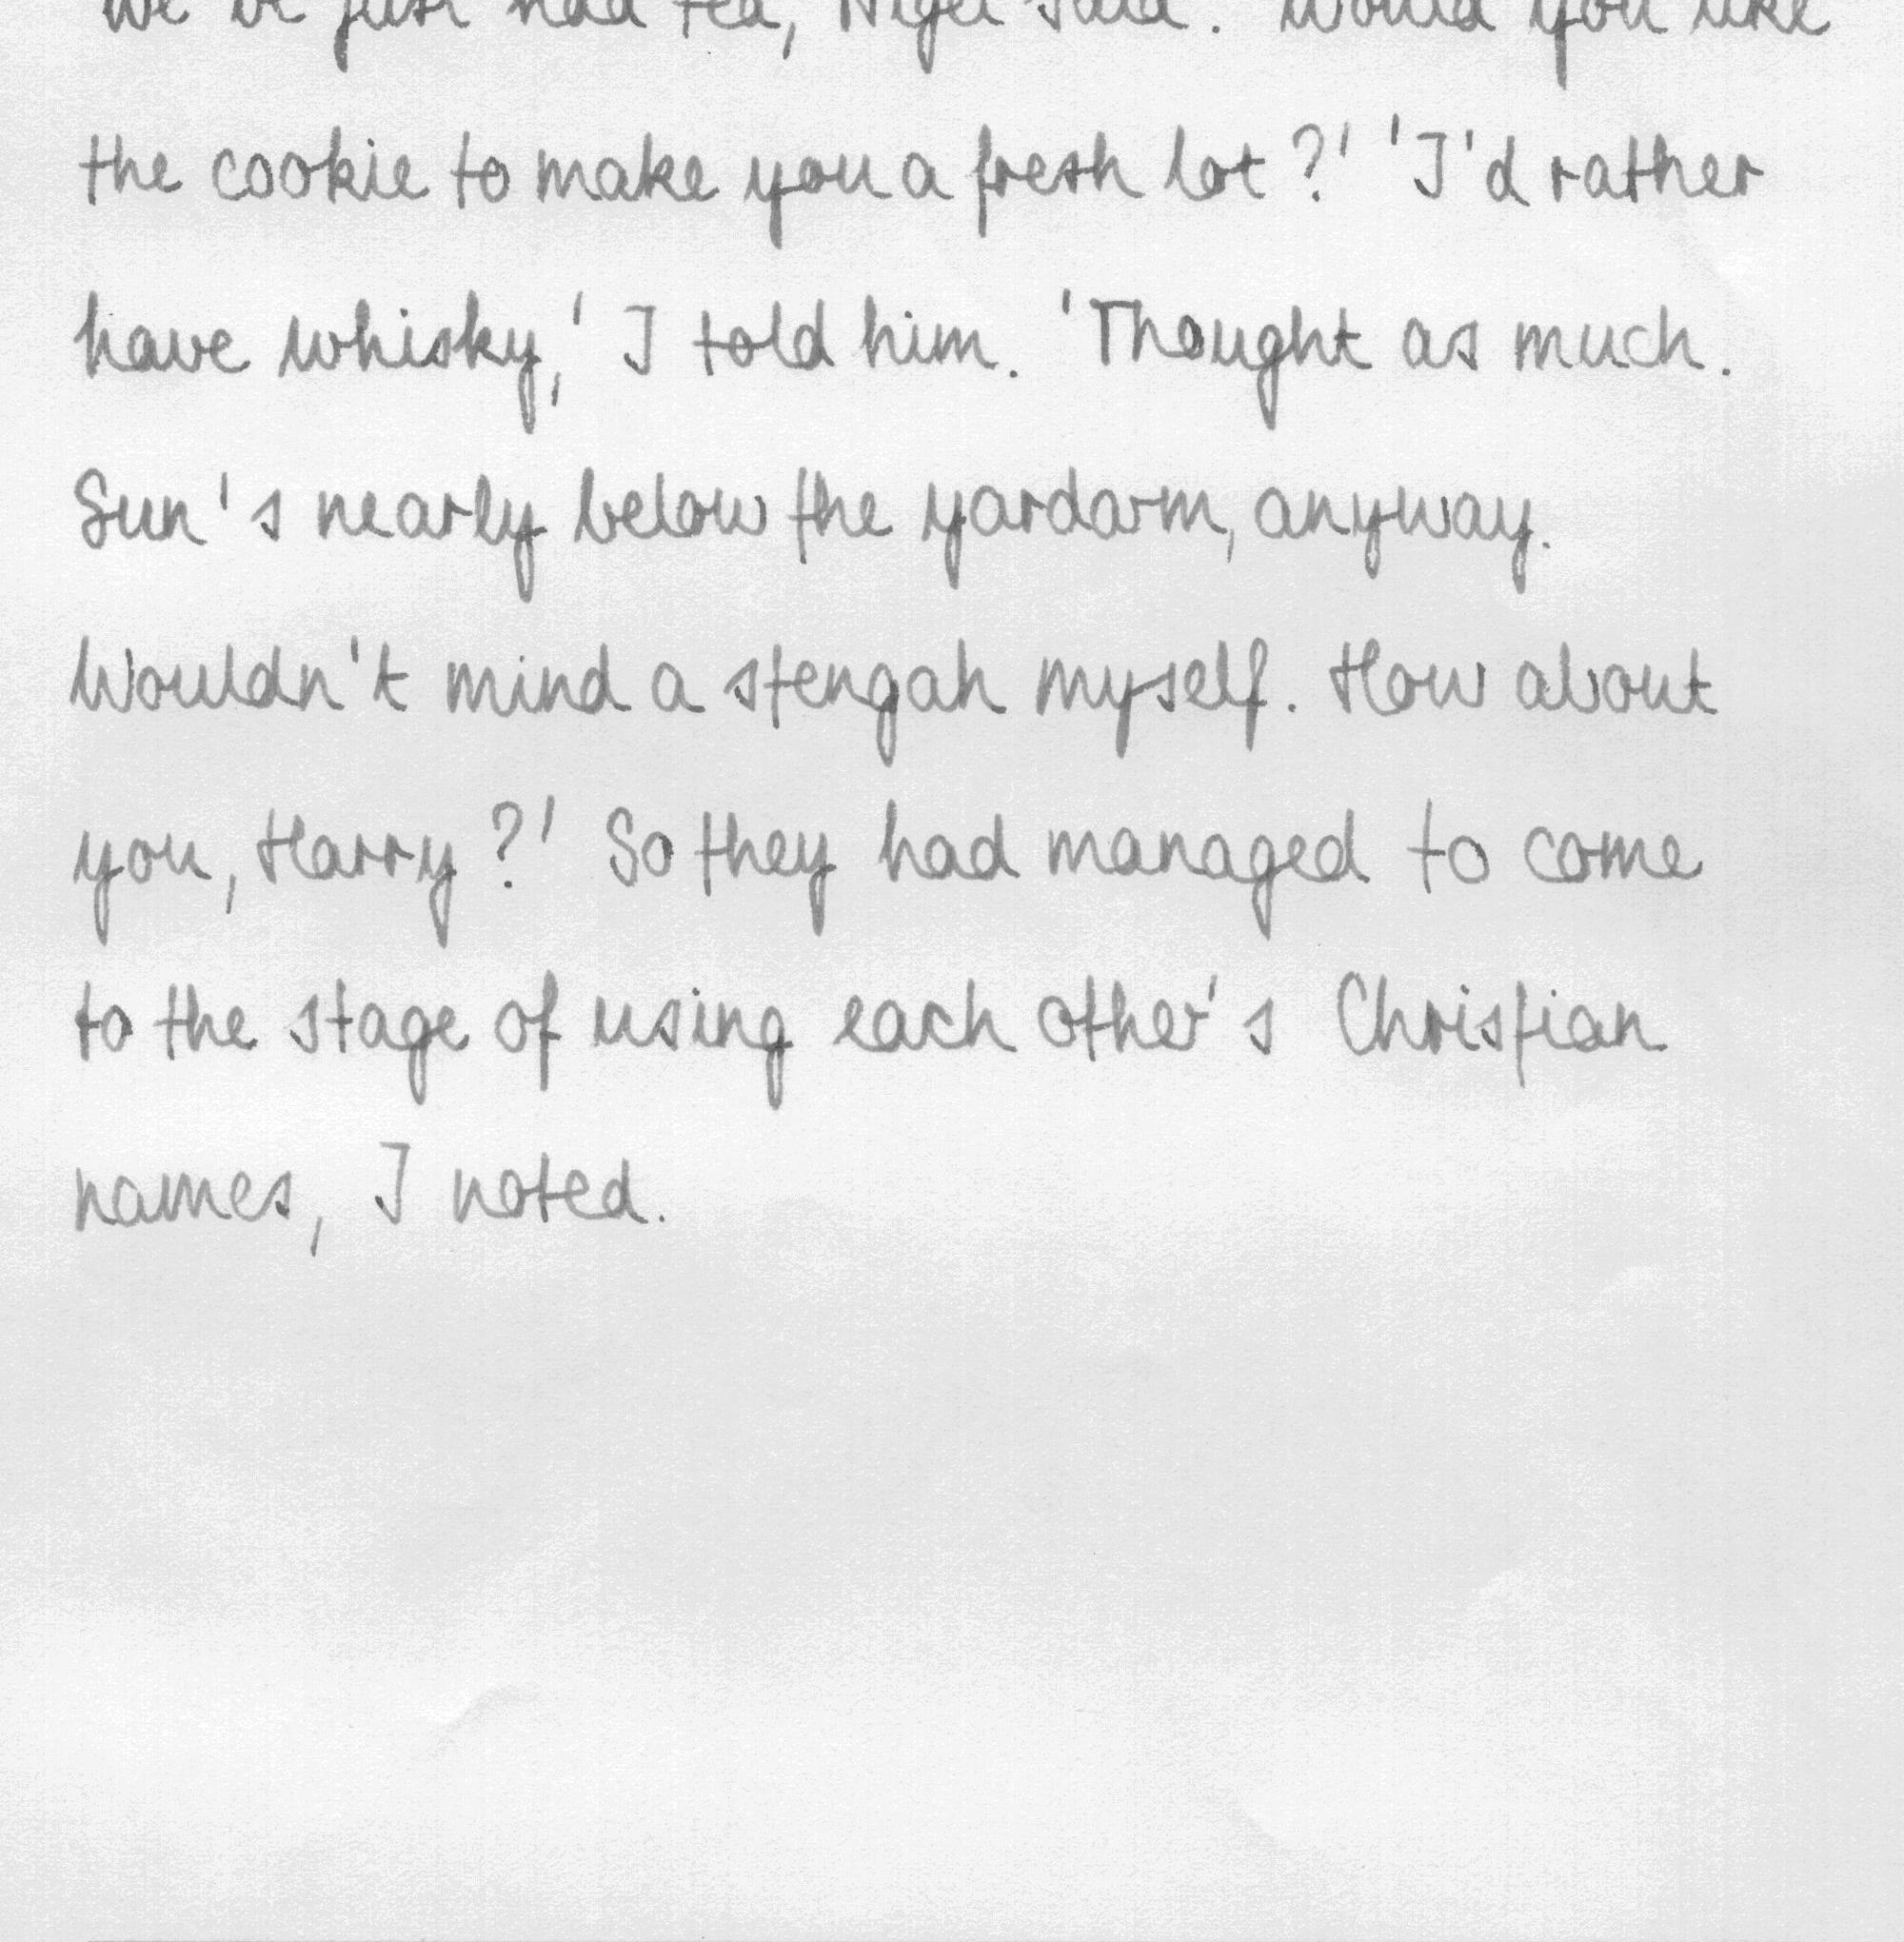 We've just had tea, Nigel said. Would you like
the cookie to make you a fresh lot?' 'I'd rather
have whisky,' I told him. 'Thought as much.
Sun's nearly below the yardarm, anyway.
Wouldn't mind a stengah myself. How about
you, Harry?' So they had managed to come
to the stage of using each other's Christian
names, I noted.